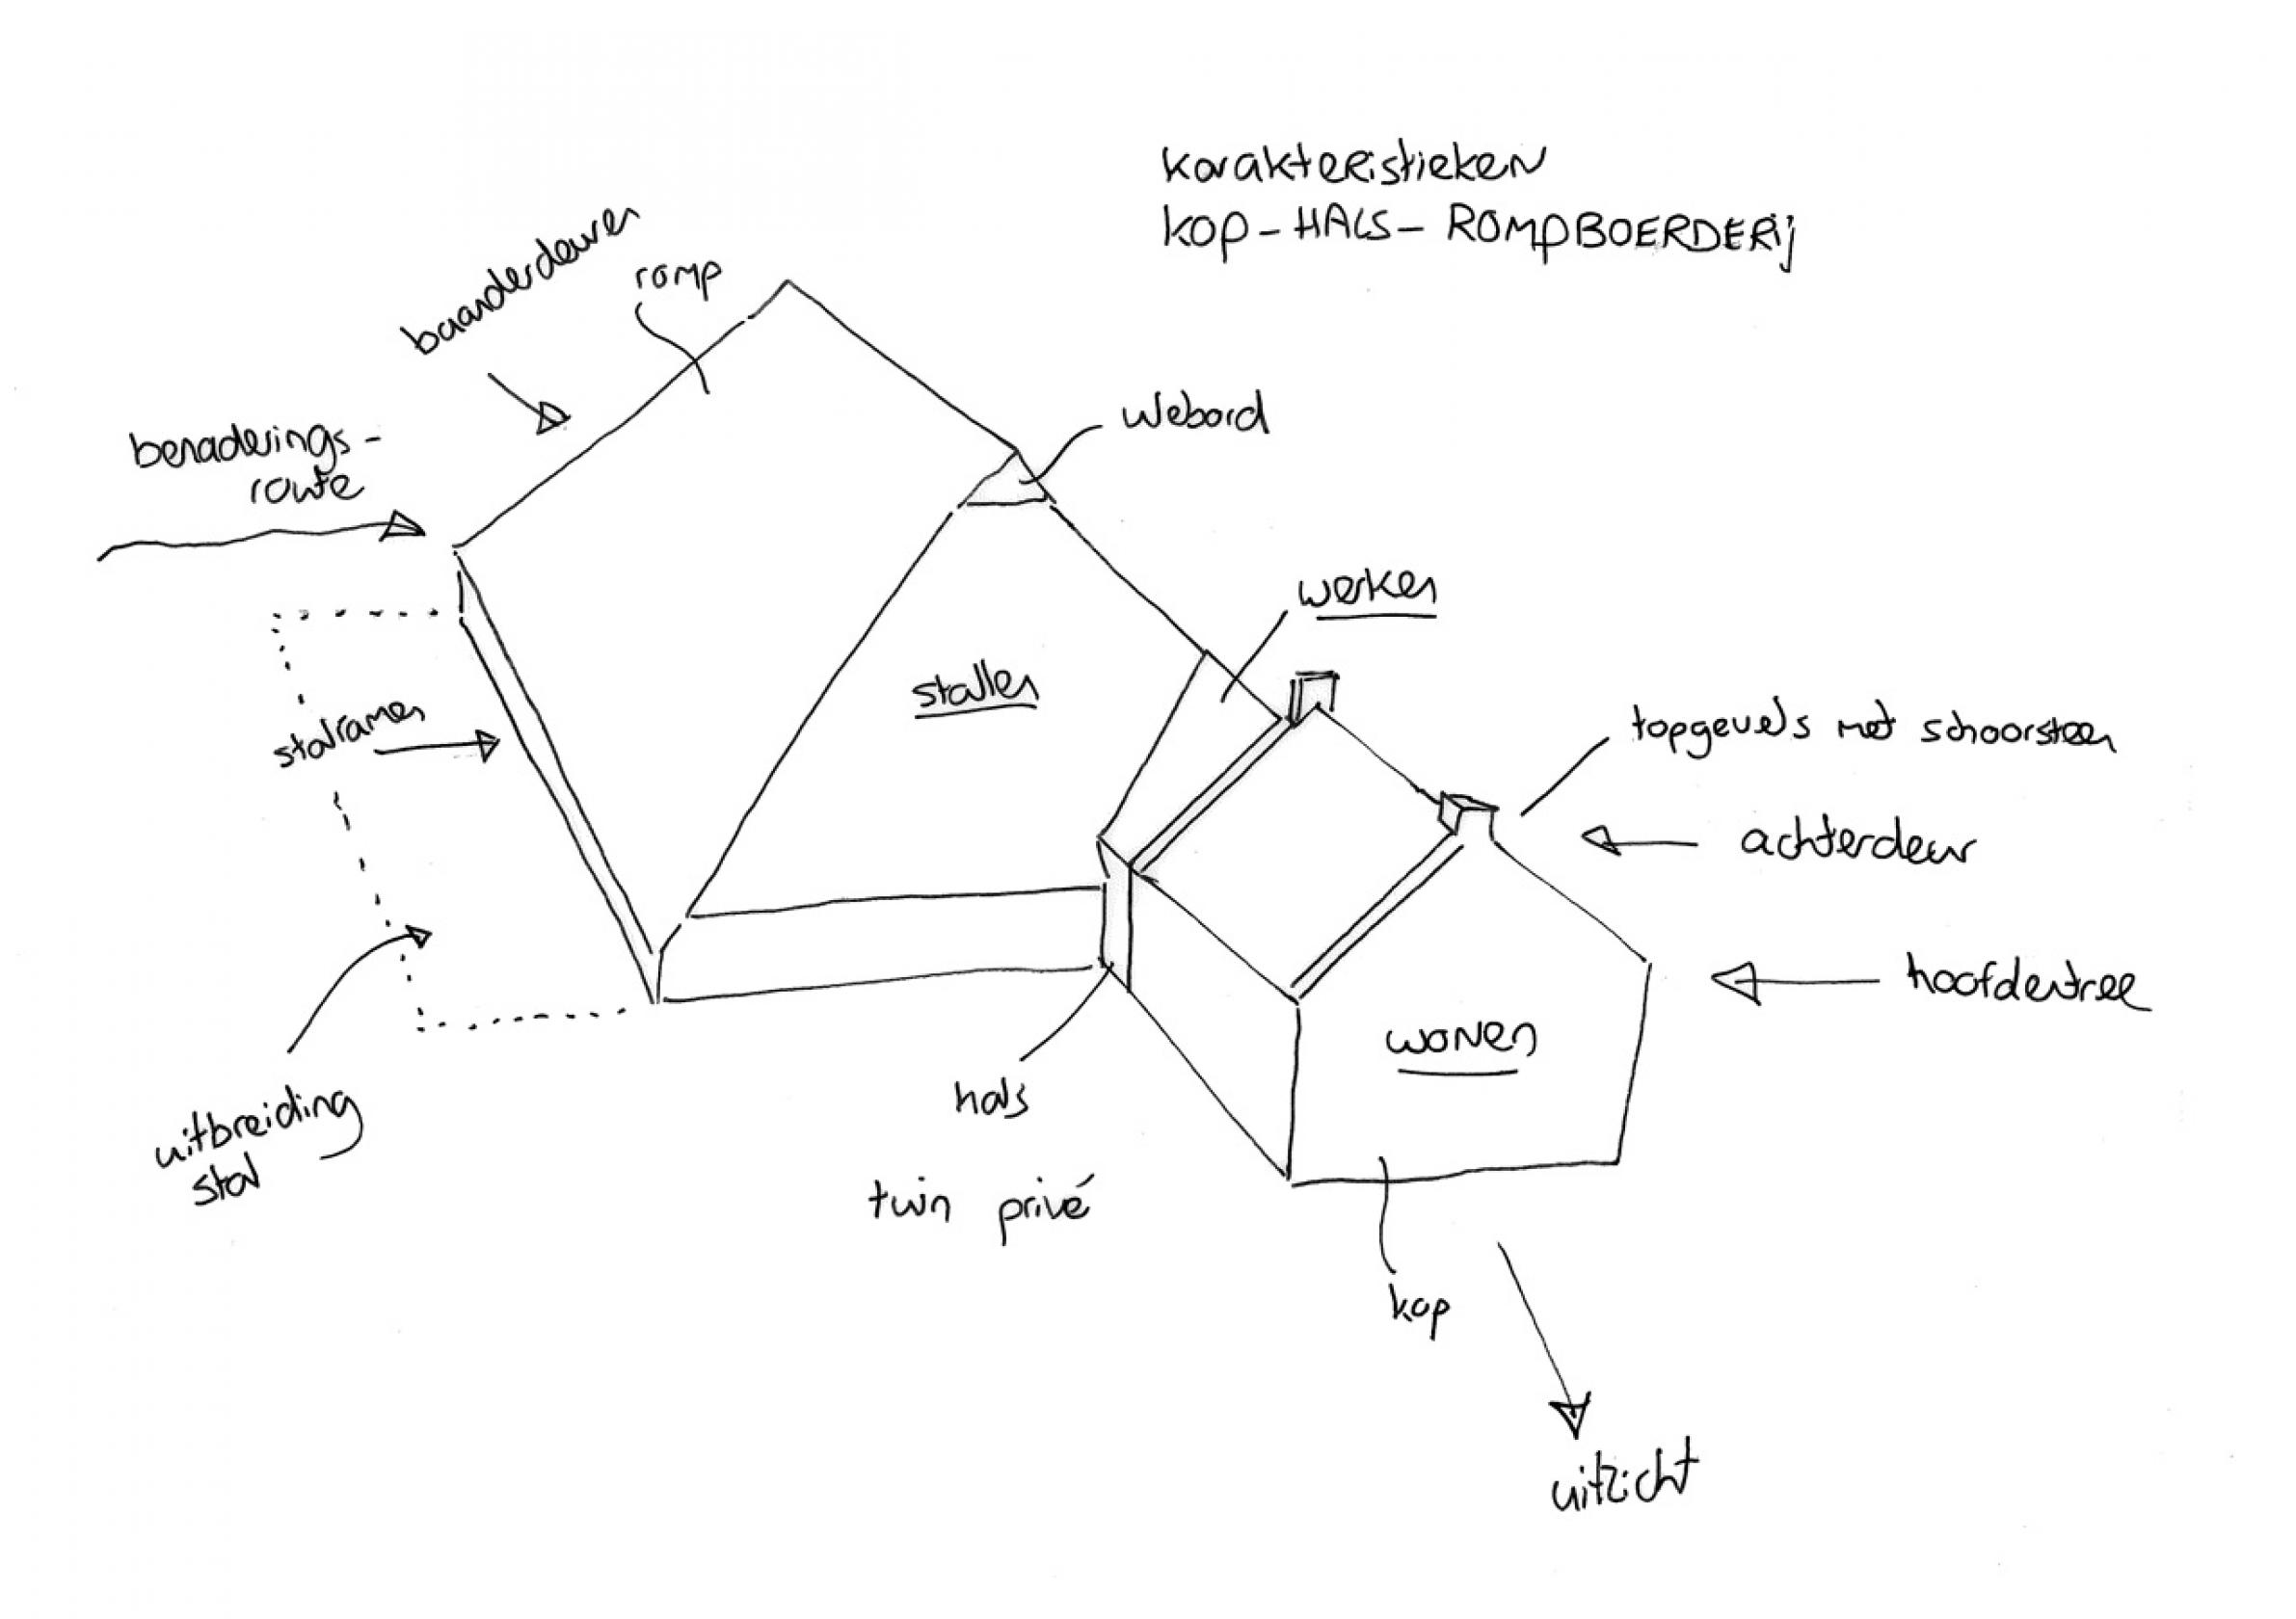 karakteristieken
KOP-HALS-ROMPBOERDERIJ
baanderdeuren
romp
webord
benaderings-
route
werken
stallen
stalramen
topgevels met schoorsteen
achterdeur
hoofdentree
wonen
hals
uitbreiding
stal
tuin privé
kop
uitzicht